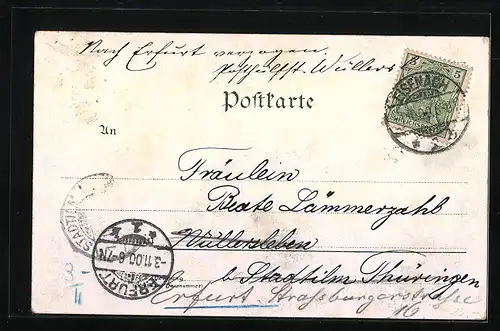 Nach Erfurt verzogen.
Posthülfst. Wüllersl
Postkarte
An
5
EISENACH
Fräulein
Beate Lämmerzahl
Wüllersleben
b. Stadtilm Thüringen
Erfurt Strassburgerstraße
16
ERFURT
3.11.00.6-7N.
STADTILM